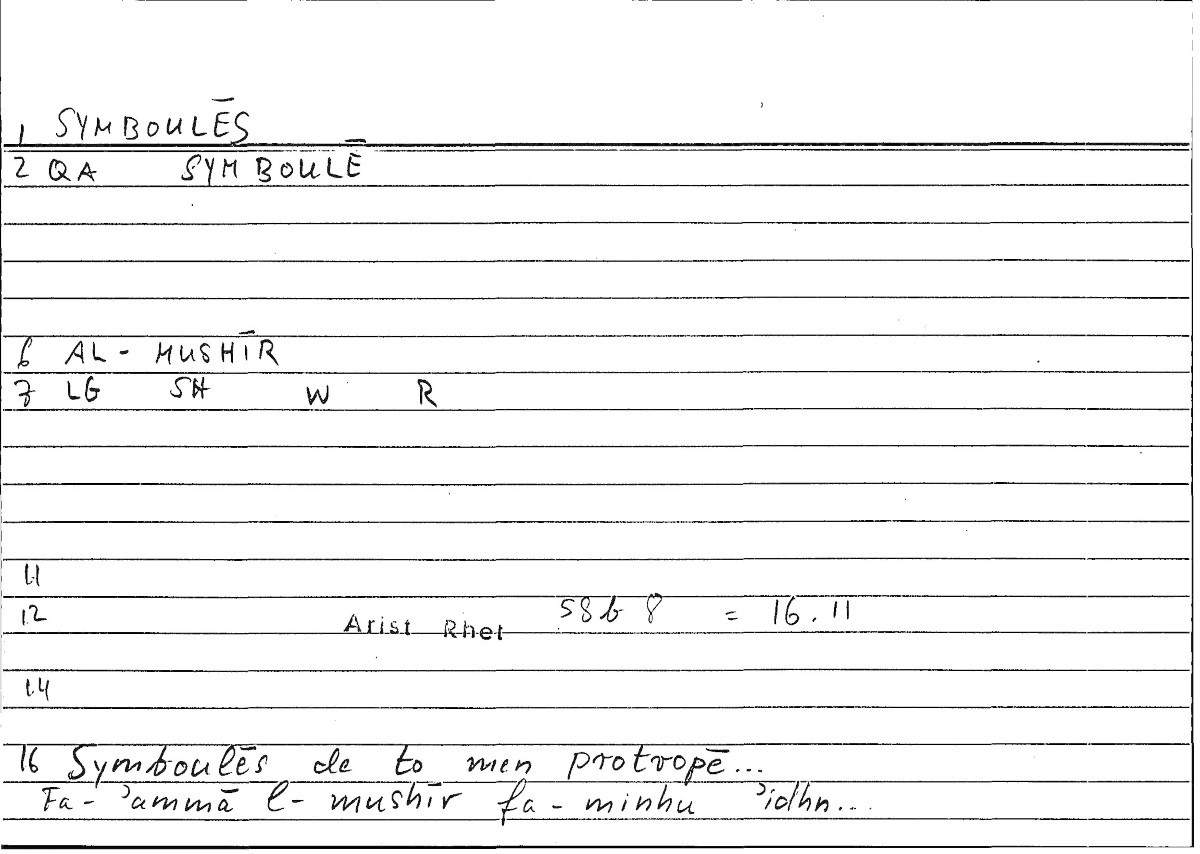 1 SYMBOULĒS
2 QA SYMBOULĒ
6 AL - MUSHĪR
7 LG SH W R
11
12 Arist Rhet 58b 8 = 16.11
14
16 Symboulēs de to men protropē...
Fa-ʾammā l-mushīr fa-minhu ʾidhn...